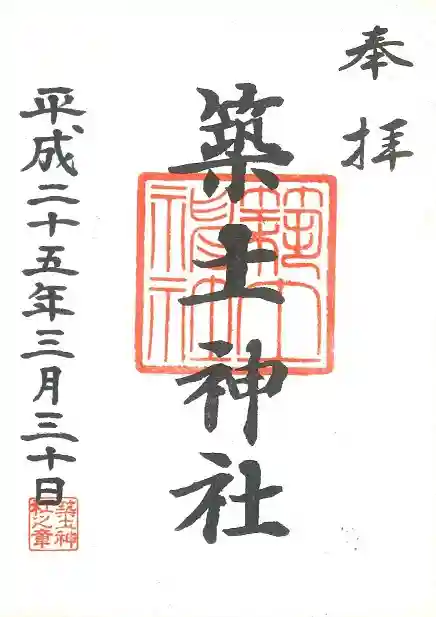 奉拝
築土神社
平成二十五年三月三十日
築土神
社之章